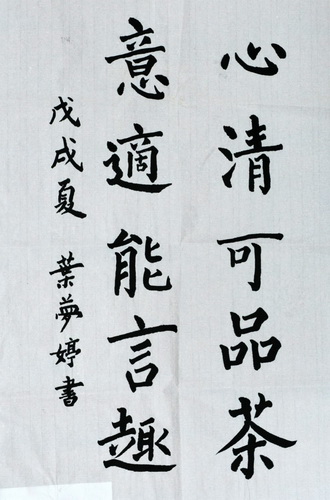 心清可品茶
意適能言趣
戊戌夏 葉夢婷書